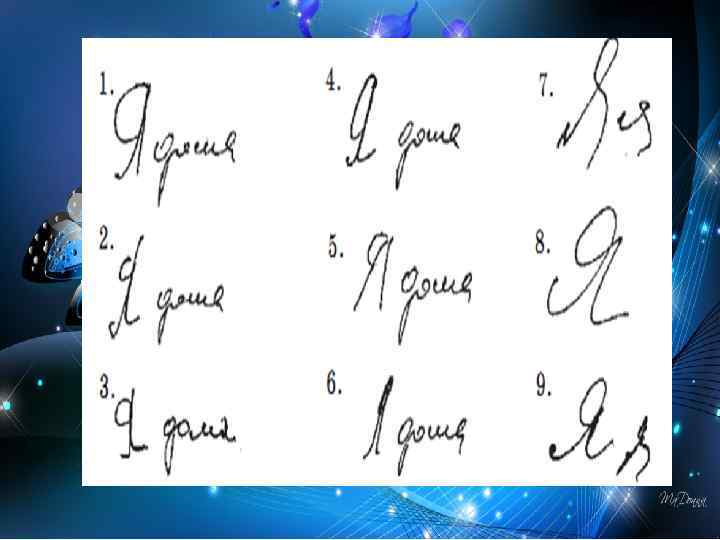 1. Я дома
2. Я дома
3. Я дома
4. Я дома
5. Я дома
6. Я дома
7. Я я
8. Я
9. Я я
MaDonna